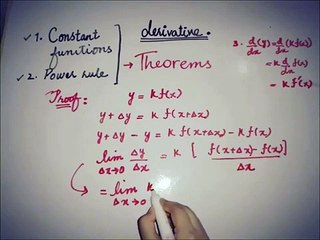 ✓ 1. Constant functions
✓ 2. Power rule
derivative.
→ Theorems
3. d/dx (y) = d/dx (k f(x))
= k d/dx f(x)
= k f'(x)
Proof:
y = k f(x)
y + Δy = k f(x+Δx)
y + Δy - y = k f(x+Δx) - k f(x)
lim Δx→0 Δy/Δx = k [ f(x+Δx) - f(x) / Δx ]
= lim Δx→0 k